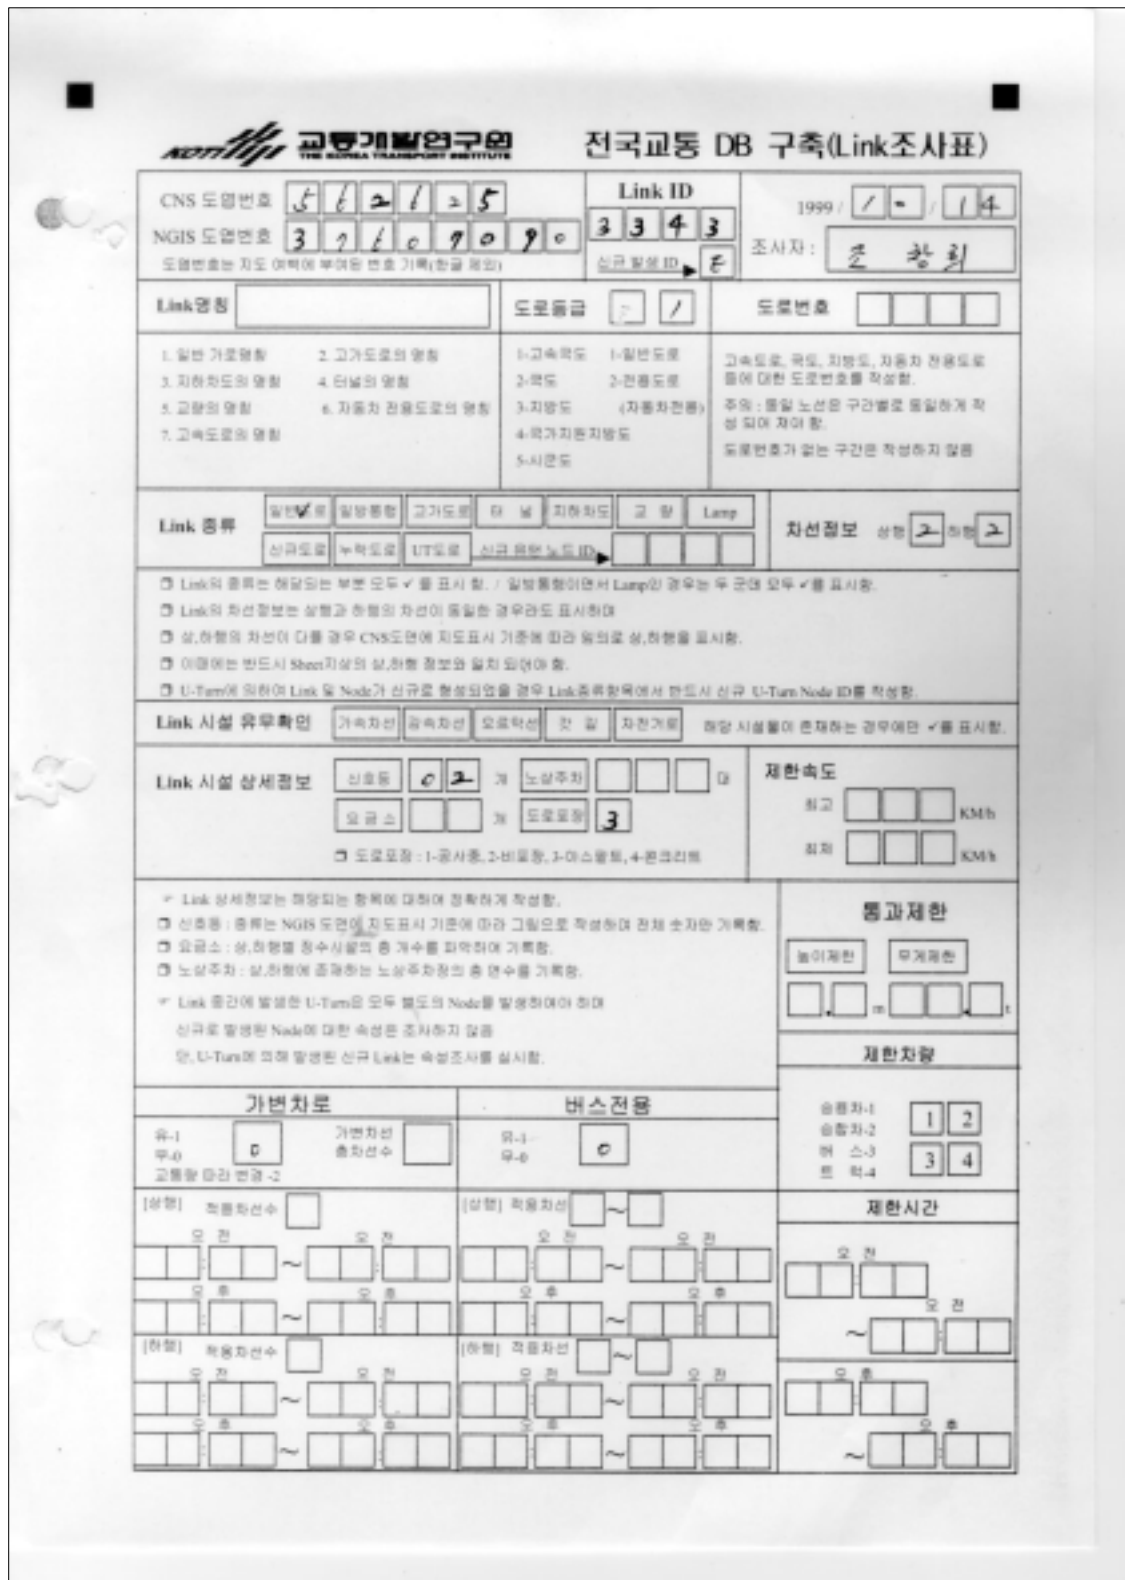 KOTI 교통개발연구원 전국교통 DB 구축(Link조사표)
THE KOREA TRANSPORT INSTITUTE
CNS 도엽번호
Link ID
1999 / 1 0 / 1 4
NGIS 도엽번호
3 3 4 3
조사자 : 조 창희
도엽번호는 지도 여백에 부여된 번호 기록(한글 제외)
신규 발생 ID
Link명칭 도로등급 1 도로번호
1. 일반 가로명칭 2. 고가도로의 명칭
3. 지하차도의 명칭 4. 터널의 명칭
5. 교량의 명칭 6. 자동차 전용도로의 명칭
7. 고속도로의 명칭
1-고속국도 1-일반도로
2-국도 2-전용도로
3-지방도 (자동차전용)
4-국가지원지방도
5-시군도
고속도로, 국도, 지방도, 자동차 전용도로
등에 대한 도로번호를 작성함.
주의 : 동일 노선은 구간별로 동일하게 작
성 되어 져야 함.
도로번호가 없는 구간은 작성하지 않음
Link 종류
일반도로 일방통행 고가도로 터 널 지하차도 교 량 Lamp
신규도로 누락도로 UT도로 신규 유턴 노드 ID
차선정보 상행 2 하행 2
❒ Link의 종류는 해당되는 부분 모두 ✓ 를 표시 함. / 일방통행이면서 Lamp인 경우는 두 군데 모두 ✓를 표시함.
❒ Link의 차선정보는 상행과 하행의 차선이 동일한 경우라도 표시하며
❒ 상,하행의 차선이 다를 경우 CNS도면에 지도표시 기준에 따라 임의로 상,하행을 표시함.
❒ 이때에는 반드시 Sheet지상의 상,하행 정보와 일치 되어야 함.
❒ U-Turn에 의하여 Link 및 Node가 신규로 형성되었을 경우 Link종류항목에서 반드시 신규 U-Turn Node ID를 작성함.
Link 시설 유무확인 가속차선 감속차선 오르막선 갓 길 자전거로 해당 시설물이 존재하는 경우에만 ✓를 표시함.
Link 시설 상세정보
신호등 0 2 개 노상주차 대
요금소 개 도로포장 3
❒ 도로포장 : 1-공사중, 2-비포장, 3-아스팔트, 4-콘크리트
제한속도
최고 KM/h
최저 KM/h
☞ Link 상세정보는 해당되는 항목에 대하여 정확하게 작성함.
❒ 신호등 : 종류는 NGIS 도면에 지도표시 기준에 따라 그림으로 작성하며 전체 숫자만 기록함.
❒ 요금소 : 상,하행별 징수시설의 총 개수를 파악하여 기록함.
❒ 노상주차 : 상,하행에 존재하는 노상주차장의 총 면수를 기록함.
☞ Link 중간에 발생한 U-Turn은 모두 별도의 Node를 발생하여야 하며
신규로 발생된 Node에 대한 속성은 조사하지 않음
단, U-Turn에 의해 발생된 신규 Link는 속성조사를 실시함.
통과제한
높이제한 무게제한
. m . t
제한차량
승용차-1 1 2
승합차-2
버 스-3 3 4
트 럭-4
가변차로
유-1
무-0 0
교통량 따라 변경 -2
가변차선
총차선수
버스전용
유-1
무-0 0
[상행] 적용차선수
오 전 오 전
: ~ :
오 후 오 후
: ~ :
[상행] 적용차선 ~
오 전 오 전
: ~ :
오 후 오 후
: ~ :
[하행] 적용차선수
오 전 오 전
: ~ :
오 후 오 후
: ~ :
[하행] 적용차선 ~
오 전 오 전
: ~ :
오 후 오 후
: ~ :
제한시간
오 전
:
오 전
~ :
오 후
:
오 후
~ :